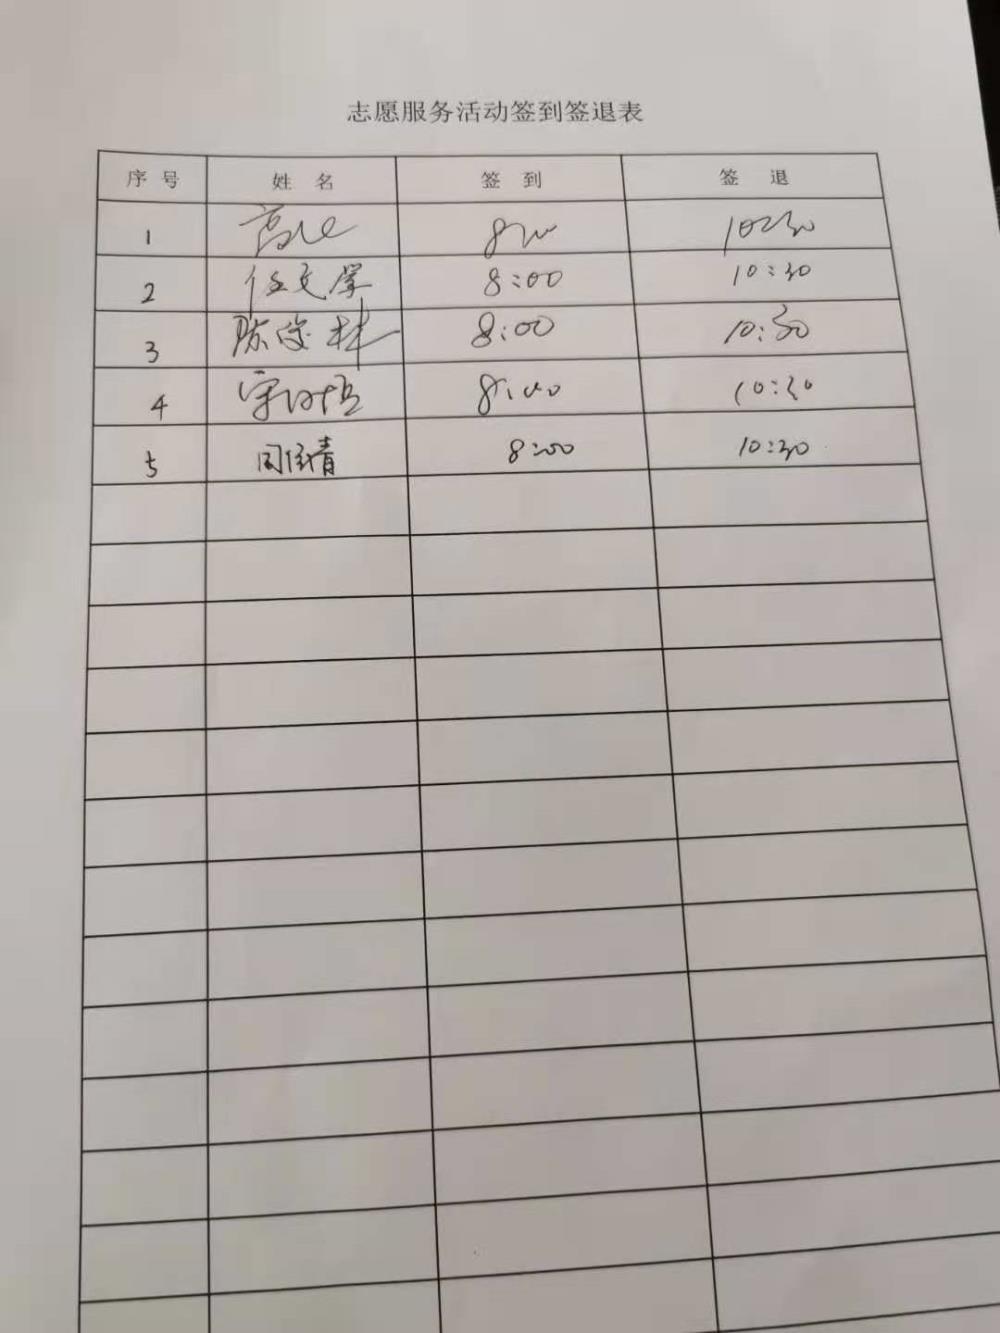 志愿服务活动签到签退表
序号 姓名 签到 签退
1 8:00 10:30
2 任文学 8:00 10:30
3 陈俊林 8:00 10:30
4 8:00 10:30
5 周倩青 8:00 10:30